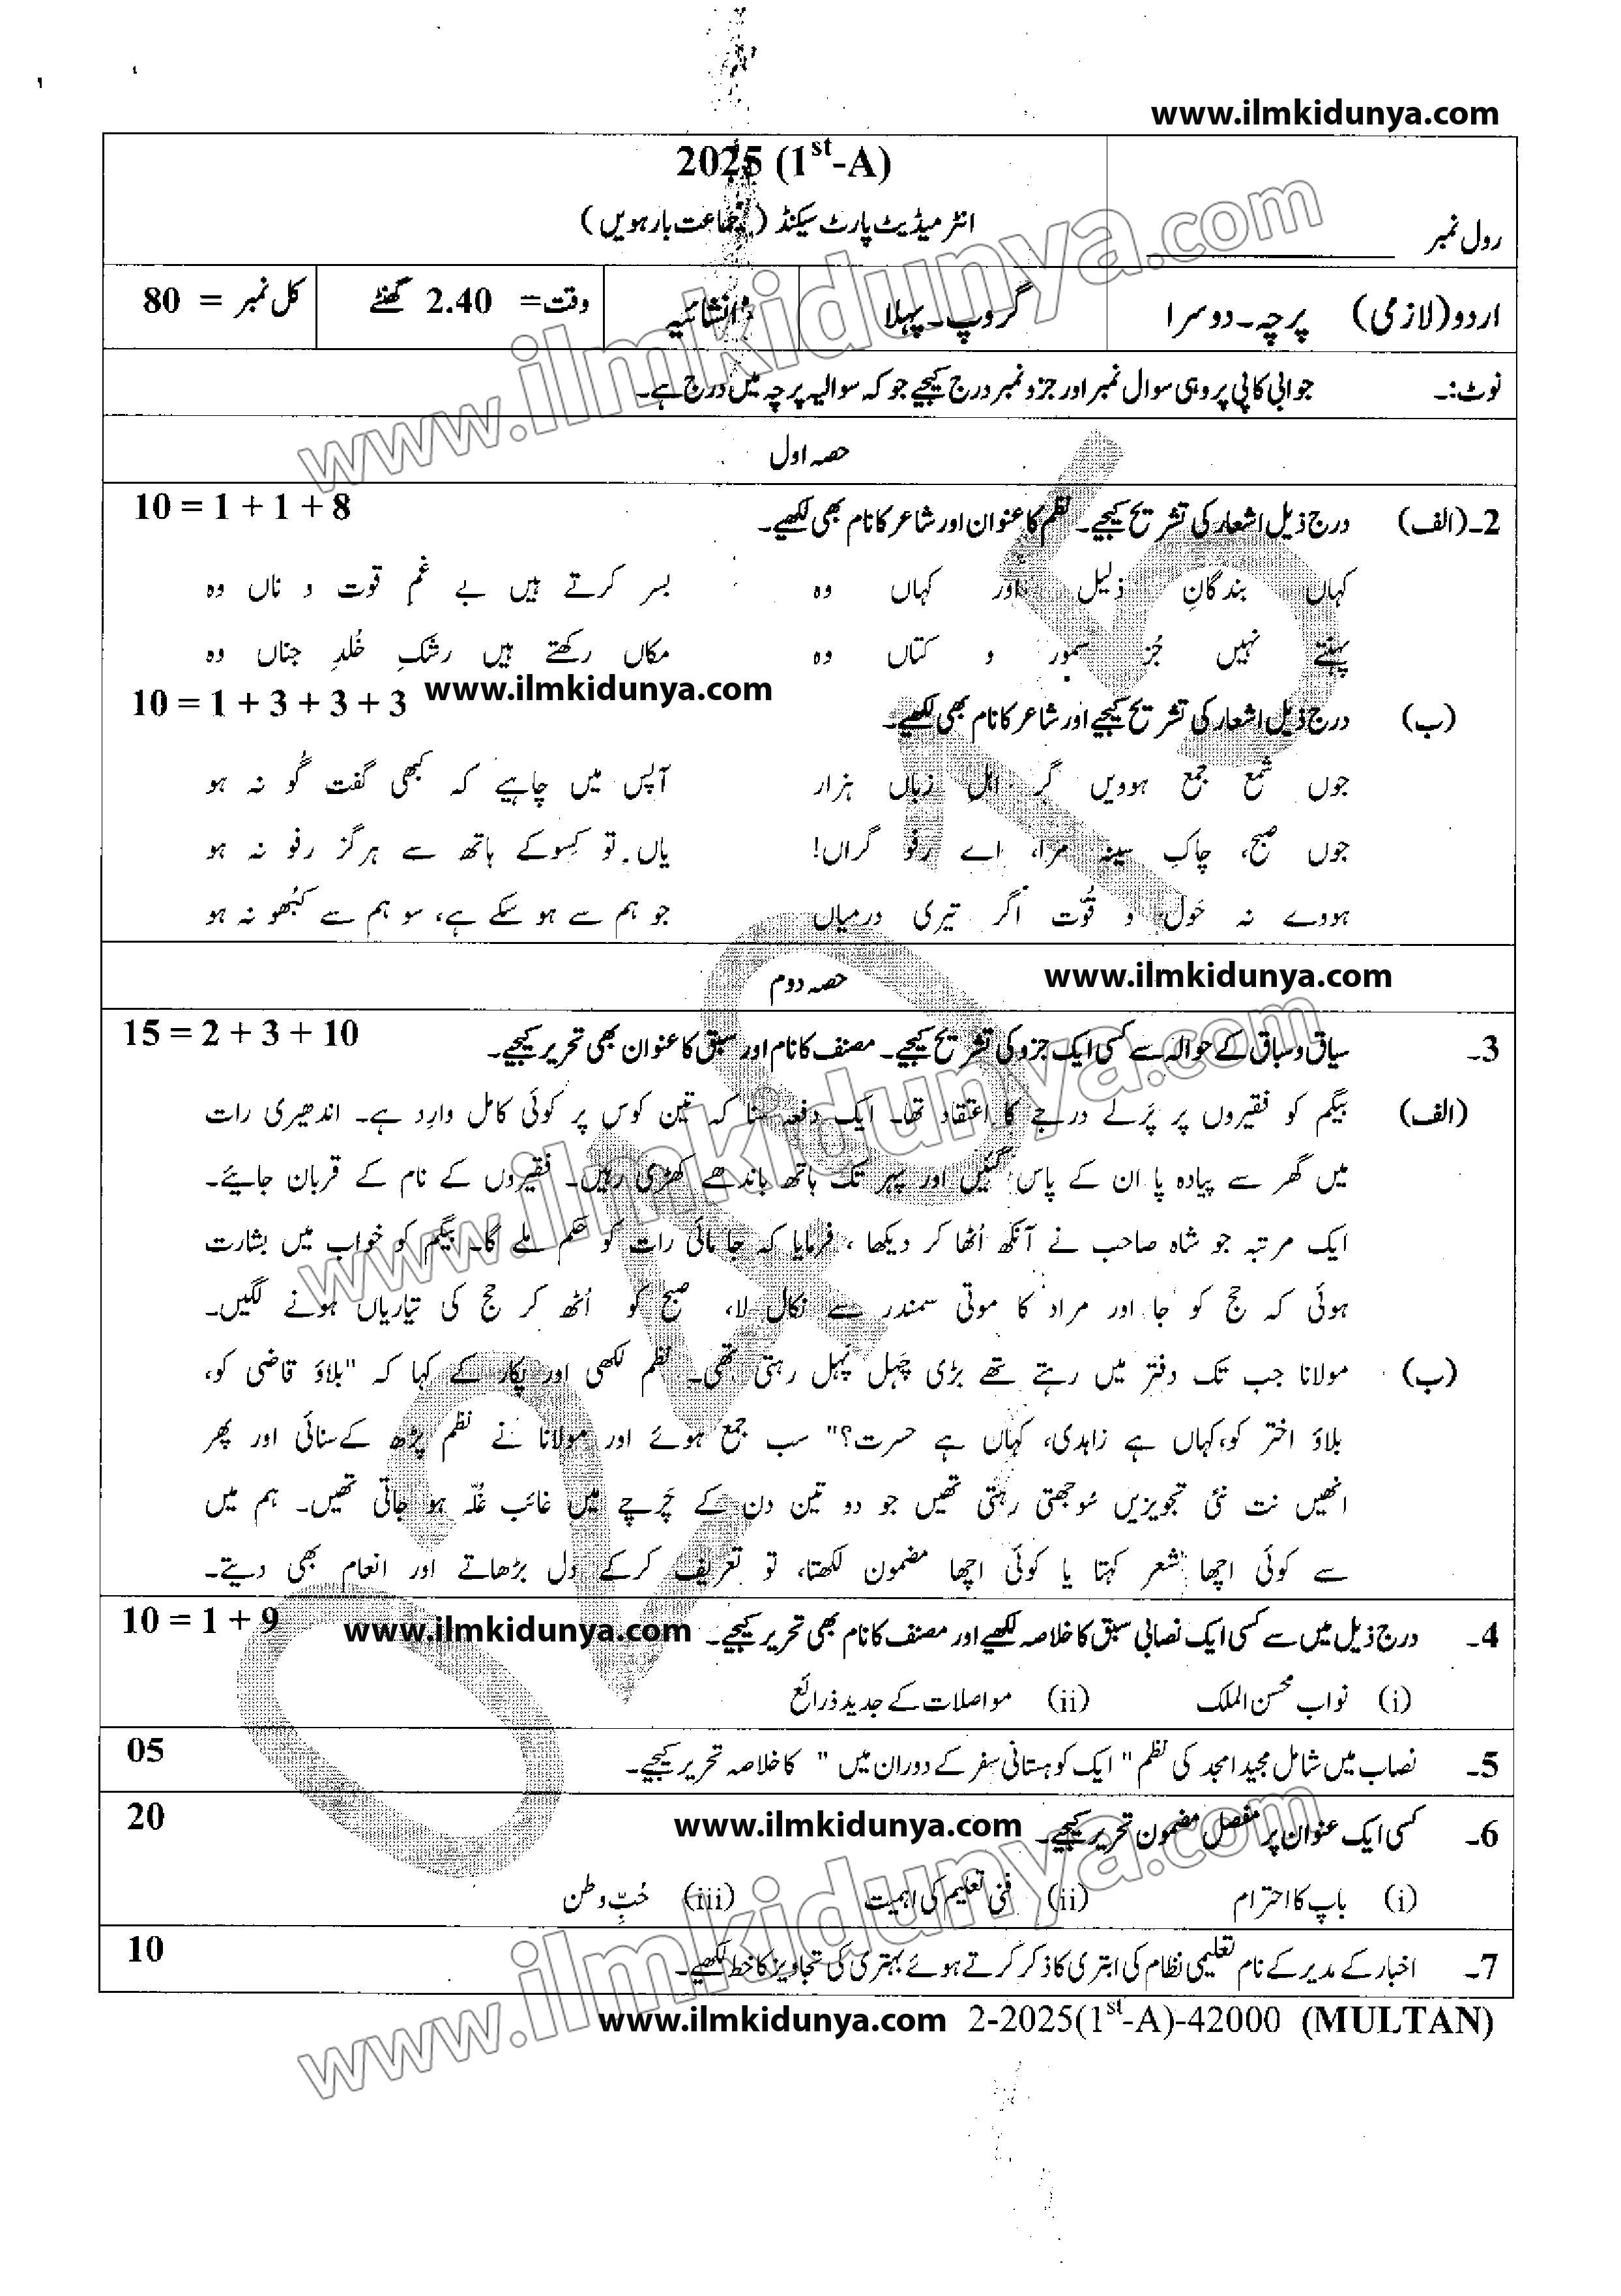 www.ilmkidunya.com
2025 (1st-A)
انٹر میڈیٹ پارٹ سیکنڈ (جماعت بارہویں)
رول نمبر
اردو(لازمی) پرچہ۔دوسرا گروپ۔پہلا انشائیہ وقت= 2.40 گھنٹے کل نمبر = 80
نوٹ:۔ جوابی کاپی پر وہی سوال نمبر اور جزو نمبر درج کیجیے جو کہ سوالیہ پرچہ میں درج ہے۔
حصہ اول
2۔(الف) درج ذیل اشعار کی تشریح کیجیے۔ نظم کا عنوان اور شاعر کا نام بھی لکھیے۔ 10 = 1 + 1 + 8
کہاں بندگانِ ذلیل اور کہاں وہ بسر کرتے ہیں بے غمِ قوت و ناں وہ
پہنتے نہیں جُز سمور و کتاں وہ مکاں رکھتے ہیں رشکِ خُلدِ جناں وہ
www.ilmkidunya.com
(ب) درج ذیل اشعار کی تشریح کیجیے اور شاعر کا نام بھی لکھیے۔ 10 = 1 + 3 + 3 + 3
جوں شمع جمع ہوویں گر اہل زباں ہزار آپس میں چاہیے کہ کبھی گفت گُو نہ ہو
جوں صبح، چاکِ سینہ مرا، اے رفو گراں! یاں تو کِسوکے ہاتھ سے ہرگز رفو نہ ہو
ہووے نہ حَول و قُوت اگر تیری درمیاں جو ہم سے ہو سکے ہے، سو ہم سے کبھُو نہ ہو
حصہ دوم www.ilmkidunya.com
3۔ سیاق و سباق کے حوالہ سے کسی ایک جزو کی تشریح کیجیے۔ مصنف کا نام اور سبق کا عنوان بھی تحریر کیجیے۔ 15 = 2 + 3 + 10
(الف) بیگم کو فقیروں پر پَرلے درجے کا اعتقاد تھا۔ ایک دفعہ سنا کہ تین کوس پر کوئی کامل وارِد ہے۔ اندھیری رات
میں گھر سے پیادہ پا ان کے پاس گئیں اور پہر تک ہاتھ باندھے کھڑی رہیں۔ فقیروں کے نام کے قربان جائیے۔
ایک مرتبہ جو شاہ صاحب نے آنکھ اُٹھا کر دیکھا ، فرمایا کہ جا مائی رات کو حکم ملے گا۔ بیگم کو خواب میں بشارت
ہوئی کہ حج کو جا اور مراد کا موتی سمندر سے نکال لا، صبح کو اُٹھ کر حج کی تیاریاں ہونے لگیں۔
(ب) مولانا جب تک دفتر میں رہتے تھے بڑی چَہل پہل رہتی تھی۔ نظم لکھی اور پکار کے کہا کہ "بلاؤ قاضی کو،
بلاؤ اختر کو،کہاں ہے زاہدی، کہاں ہے حسرت؟" سب جمع ہوئے اور مولانا نے نظم پڑھ کےسنائی اور پھر
انھیں نت نئی تجویزیں سُوجھتی رہتی تھیں جو دو تین دن کے چَرچے میں غائب غُلّہ ہو جاتی تھیں۔ ہم میں
سے کوئی اچھا شعر کہتا یا کوئی اچھا مضمون لکھتا، تو تعریف کرکے دل بڑھاتے اور انعام بھی دیتے۔
4۔ درج ذیل میں سے کسی ایک نصابی سبق کا خلاصہ لکھیے اور مصنف کا نام بھی تحریر کیجیے۔ www.ilmkidunya.com 10 = 1 + 9
(i) نواب محسن الملک (ii) مواصلات کے جدید ذرائع
5۔ نصاب میں شامل مجید امجد کی نظم " ایک کوہستانی سفر کے دوران میں " کا خلاصہ تحریر کیجیے۔ 05
6۔ کسی ایک عنوان پر مفصل مضمون تحریر کیجیے۔ www.ilmkidunya.com 20
(i) باپ کا احترام (ii) فنی تعلیم کی اہمیت (iii) حُبِّ وطن
7۔ اخبار کے مدیر کے نام تعلیمی نظام کی ابتری کا ذکر کرتے ہوئے بہتری کی تجاویز کا خط لکھیے۔ 10
www.ilmkidunya.com 2-2025(1st-A)-42000 (MULTAN)
www.ilmkidunya.com
www.ilmkidunya.com
www.ilmkidunya.com